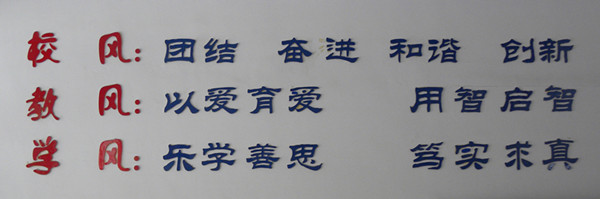 校 风: 团结 奋进 和谐 创新
教 风: 以爱育爱 用智启智
学 风: 乐学善思 笃实求真